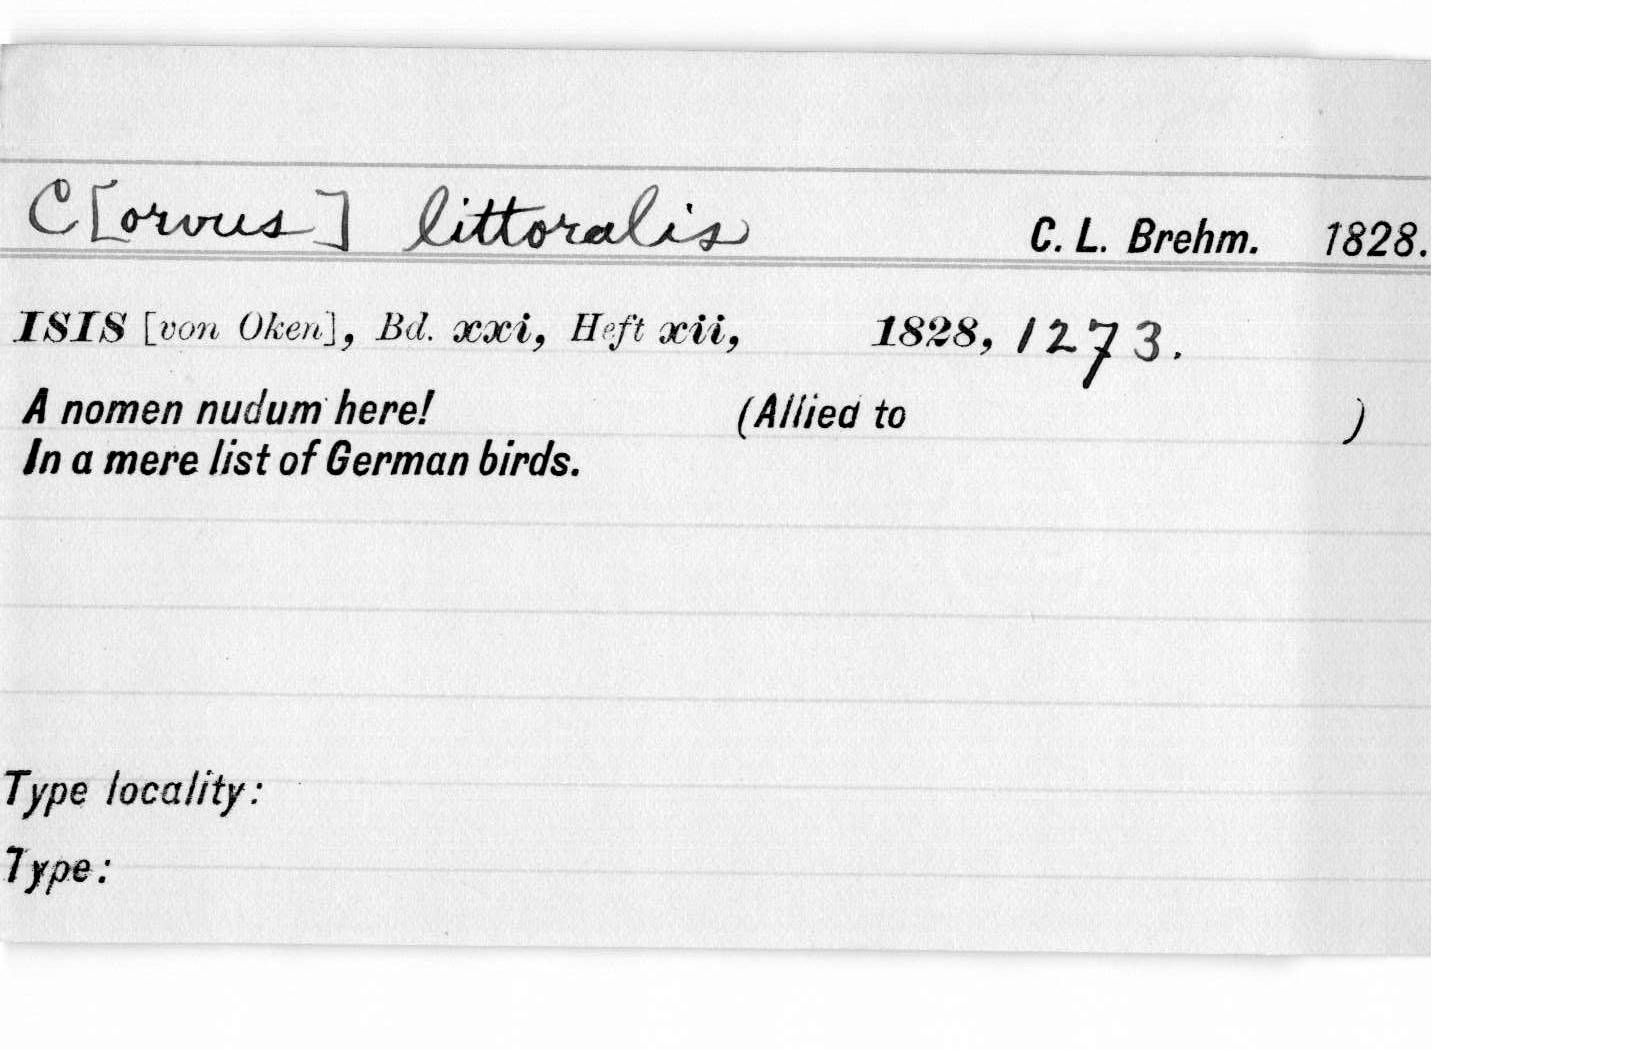 C[orvus] littoralis C. L. Brehm. 1828.
ISIS [von Oken], Bd. xxi, Heft xii, 1828, 1273.
A nomen nudum here! (Allied to )
In a mere list of German birds.
Type locality:
Type: